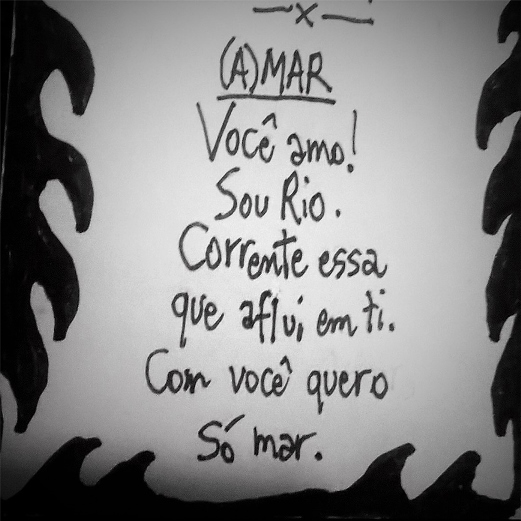 — x —
(A)MAR
Você amo!
Sou Rio.
Corrente essa
que aflui em ti.
Com você quero
Só mar.